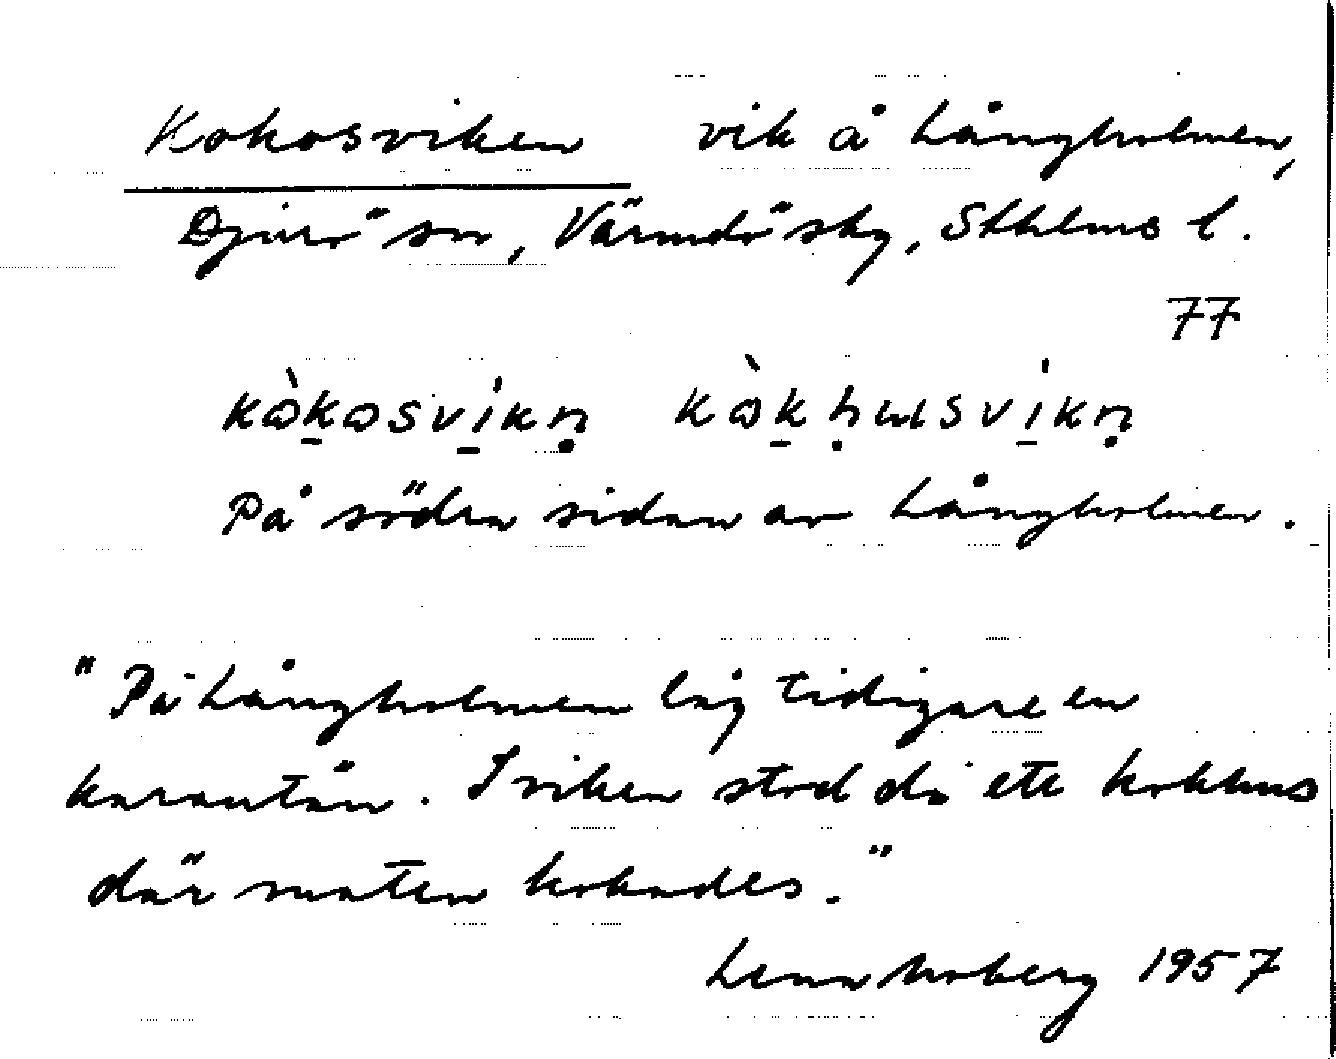 Kokosviken vik å Långholmen,
Djurö sn, Värmdö skg, Sthlms l.
77
kòkosvikn kòkhusvikn
På södra sidan av Långholmen.
"På Långholmen låg tidigare en
karantän. I viken stod då ett kokhus
där maten kokades."
Lena Moberg 1957